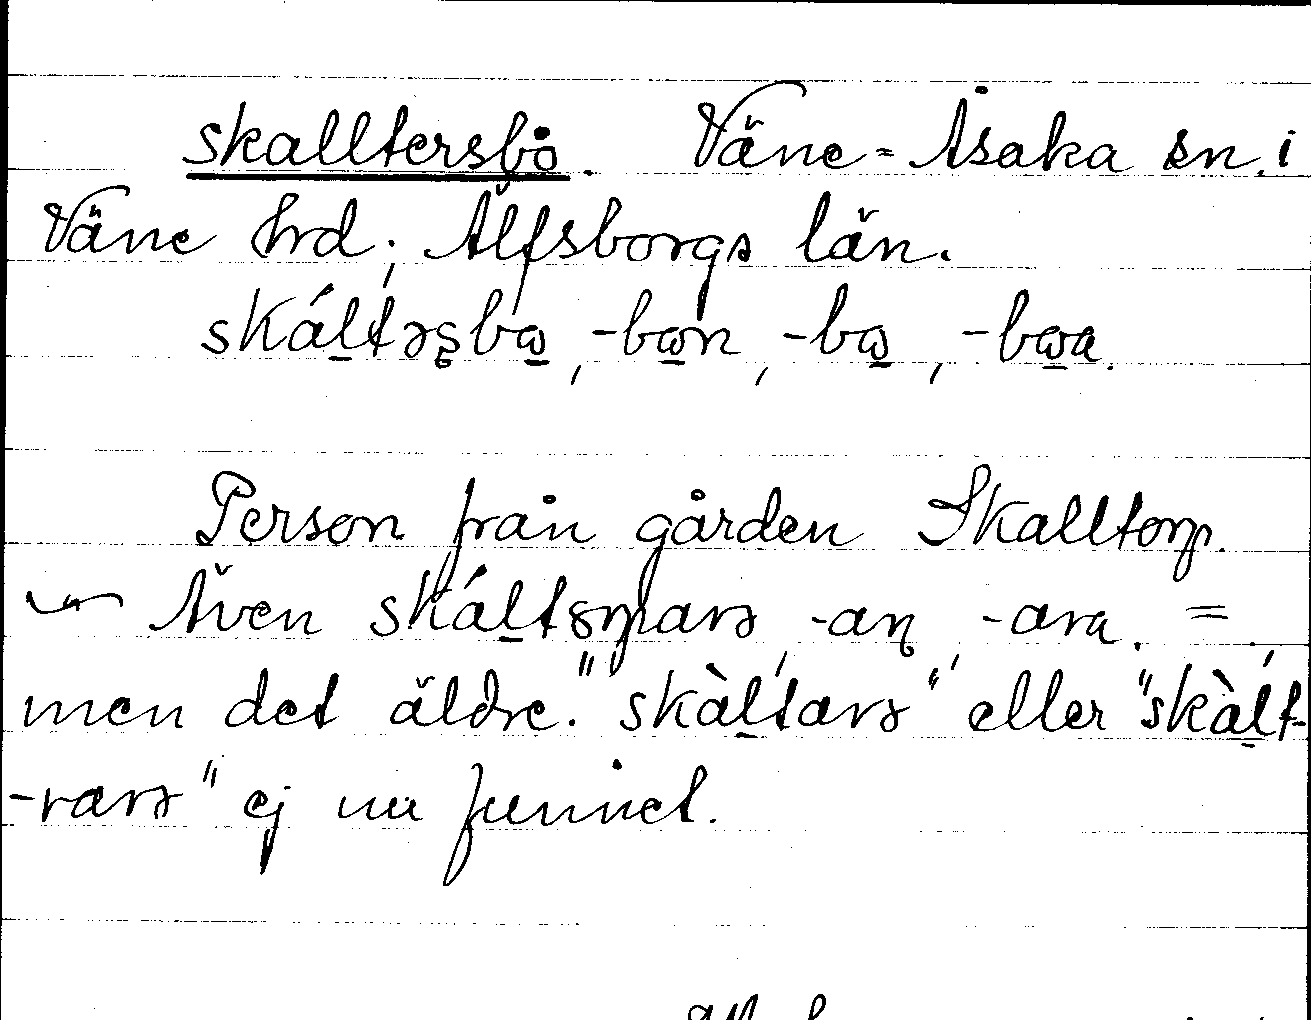 skalltersbo. Väne-Åsaka sn. i
Väne hrd; Älfsborgs län.
skál̠tɘʂbɷ̠, -bɷ̠n, -bɷ̠, -bɷ̠a.
Person från gården Skalltorp.
Även -an, -ara. =
men det äldre "skàl̠tarɘ" eller "skàl̠t-
-rarɘ" ej nu funnet.